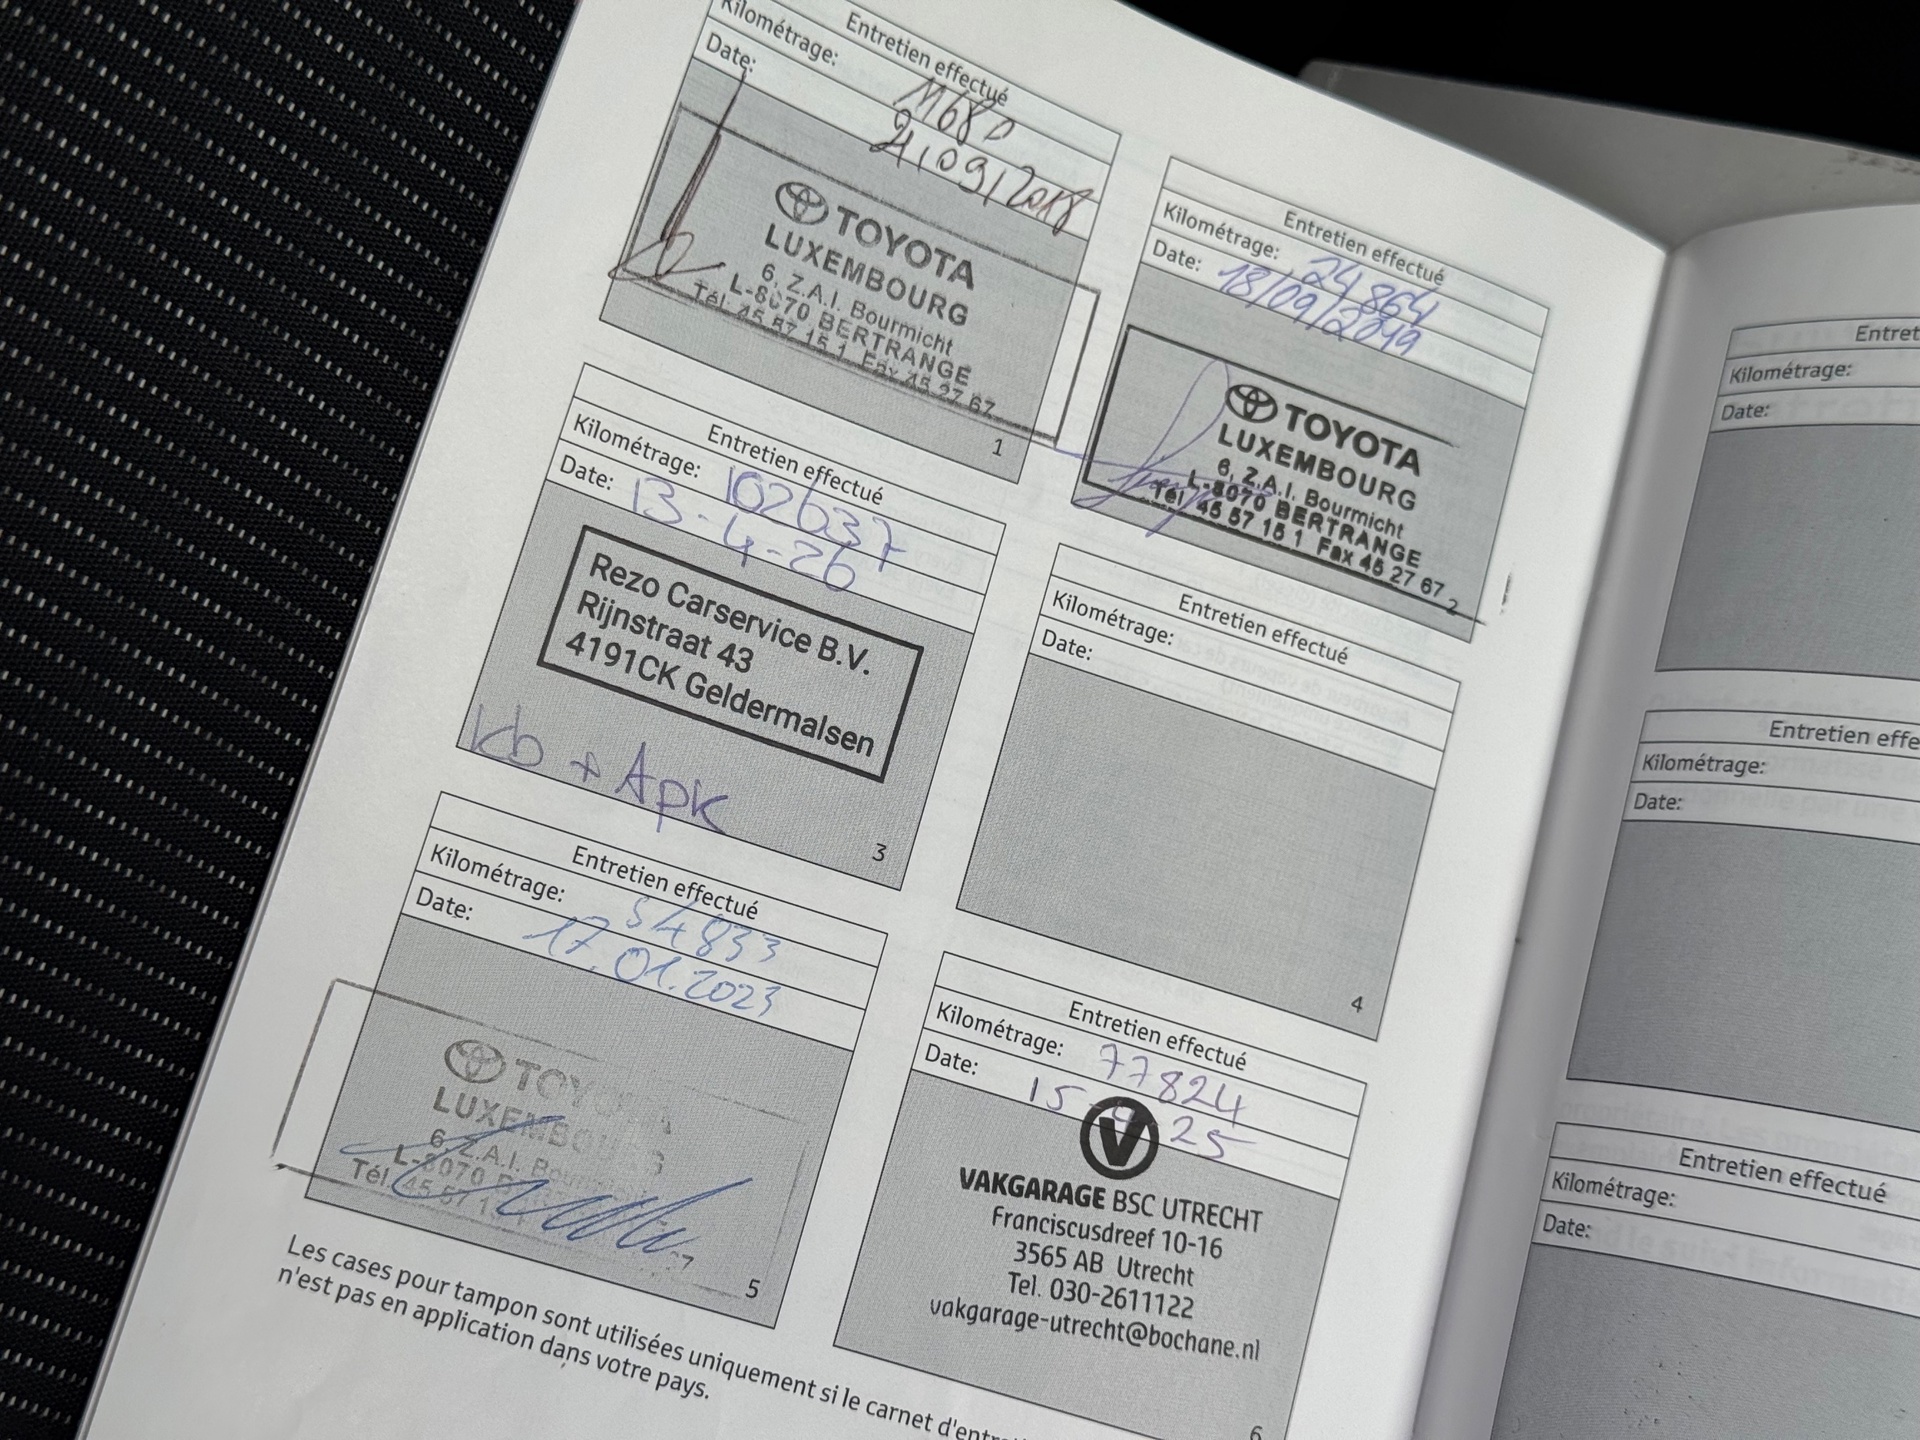 Entretien effectué
Kilométrage: 11680
Date: 21/09/2018
TOYOTA
LUXEMBOURG
6, Z.A.I. Bourmicht
L-8070 BERTRANGE
Tél: 45 57 15 1 Fax 45 27 67
1
Entretien effectué
Kilométrage: 24864
Date: 18/09/2019
TOYOTA
LUXEMBOURG
6, Z.A.I. Bourmicht
L-8070 BERTRANGE
Tél 45 57 15 1 Fax 45 27 67
2
Entretien effectué
Kilométrage: 102637
Date: 13-4-26
Rezo Carservice B.V.
Rijnstraat 43
4191CK Geldermalsen
kb + Apk
3
Entretien effectué
Kilométrage:
Date:
4
Entretien effectué
Kilométrage: 54833
Date: 17.01.2023
TOYOTA
LUXEMBOURG
6, Z.A.I.
L-8070
Tél. 45 57
5
Entretien effectué
Kilométrage: 77824
Date: 15-4-25
VAKGARAGE BSC UTRECHT
Franciscusdreef 10-16
3565 AB Utrecht
Tel. 030-2611122
vakgarage-utrecht@bochane.nl
6
Les cases pour tampon sont utilisées uniquement si le carnet d'entre
n'est pas en application dans votre pays.
Entret
Kilométrage:
Date:
Entretien effe
Kilométrage:
Date:
Entretien effectué
Kilométrage:
Date: